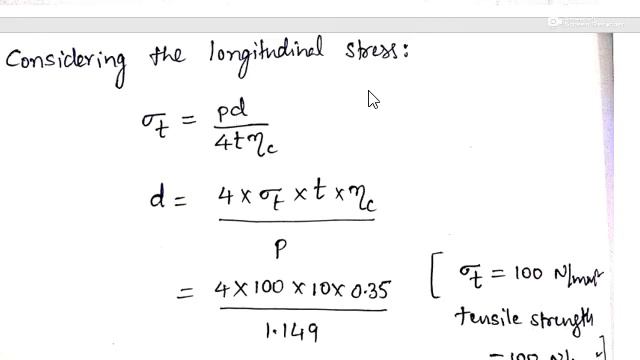 Considering the longitudinal stress:
σt = pd / 4tηc
d = 4 × σt × t × ηc / P
= 4 × 100 × 10 × 0.35 / 1.149
[ σt = 100 N/mm²
tensile strength
= 100 N/